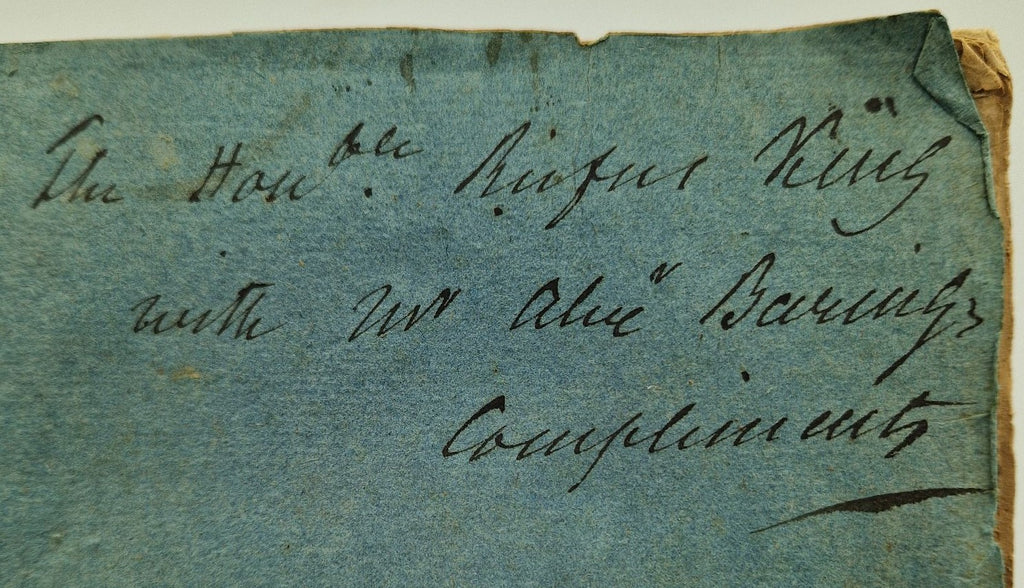 The Honble. Rufus King
with Mr Alexr Barings
Compliments